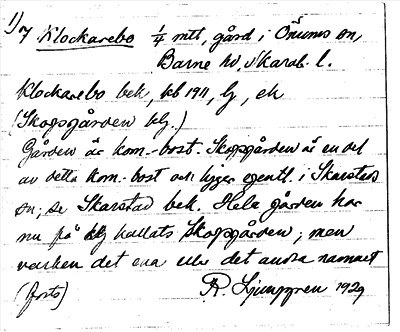 1)
7 Klockarebo 1/4 mtl, gård i Önums sn,
Barne hd, Skarab. l.
Klockarebo bek, kb 1911, lj, ek
(Skogsgården blj.)
Gården är kom.-bost. Skogsgården är en del
av detta kom.-bost och ligger egentl. i Skarstads
sn; se Skarstad bek. Hela gården har
nu på blj kallats Skogsgården; men
varken det ena elle det andra namnet
(forts) R. Ljunggren 1929